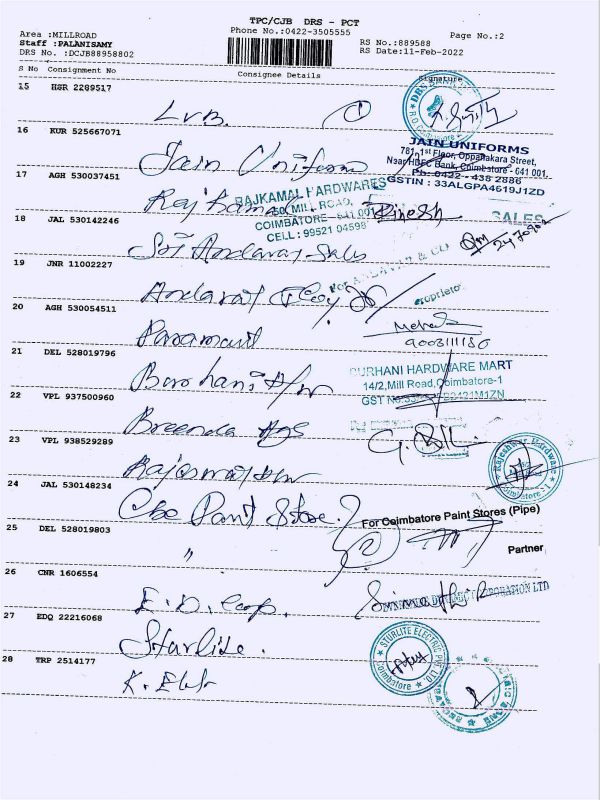 TPC/CJB DRS - PCT
Area :MILLROAD
Phone No.:0422-3505555
Page No.:2
Staff :PALANISAMY
RS No.:889588
DRS No. :DCJB88958802
RS Date:11-Feb-2022
S No Consignment No
Consignee Details
Signature
15 HSR 2289517
L v B.
16 KUR 525667071
Jain Uniform
JAIN UNIFORMS
781, 1st Floor, Oppanakara Street,
Near HDFC Bank, Coimbatore - 641 001.
Ph: 0422 - 438 2886
GSTIN : 33ALGPA4619J1ZD
17 AGH 530037451
RAJKAMAL HARDWARES
MILL ROAD,
COIMBATORE - 641 001
CELL : 99521 04598
Dinesh
SALES
18 JAL 530142246
Sri Andavar Sales
19 JNR 11002227
Andavar & Coy
For ANDAVAR & CO
Proprietor
20 AGH 530054511
Paramount
9003111130
21 DEL 528019796
Burhani H/w
BURHANI HARDWARE MART
14/2, Mill Road, Coimbatore-1
22 VPL 937500960
Breenda Ags
23 VPL 938529289
Rajeswari
Rajeshwar Hardware
Coimbatore - 1
24 JAL 530148234
Cbe Paint Store
For Coimbatore Paint Stores (Pipe)
Partner
25 DEL 528019803
"
26 CNR 1606554
E. D. Corp.
CORPORATION LTD
27 EDQ 22216068
Sturlite.
STURLITE ELECTRIC PVT LTD
Coimbatore
28 TRP 2514177
K. Elet